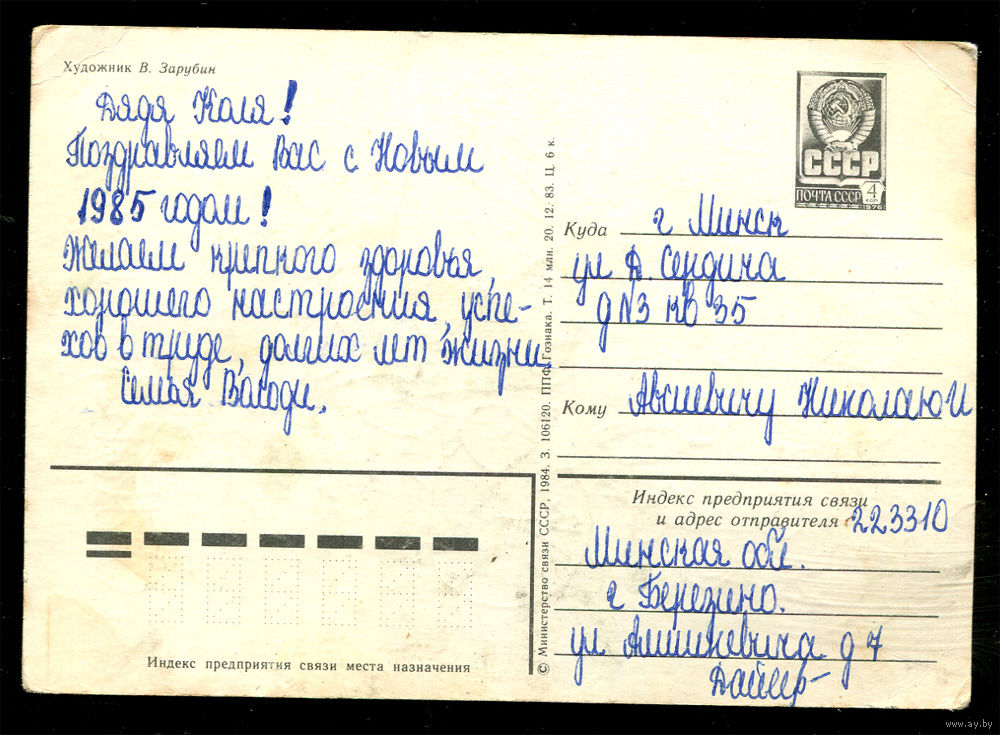 Художник В. Зарубин
Дядя Коля!
Поздравляем Вас с Новым
1985 годом!
Желаем крепкого здоровья,
хорошего настроения, успе-
хов в труде, долгих лет жизни.
Семья
СССР
ПОЧТА СССР 4 КОП
1976
Куда г Минск
ул А. Сердича
д N3 кв 35
Кому Авсиевичу Николаю И
Индекс предприятия связи
и адрес отправителя 223310
Минская обл.
г Березино.
ул д 7
Индекс предприятия связи места назначения
© Министерство связи СССР, 1984. З. 106120. ППФ Гознака. Т. 14 млн. 20. 12. 83. Ц. 6 к.
www.ay.by